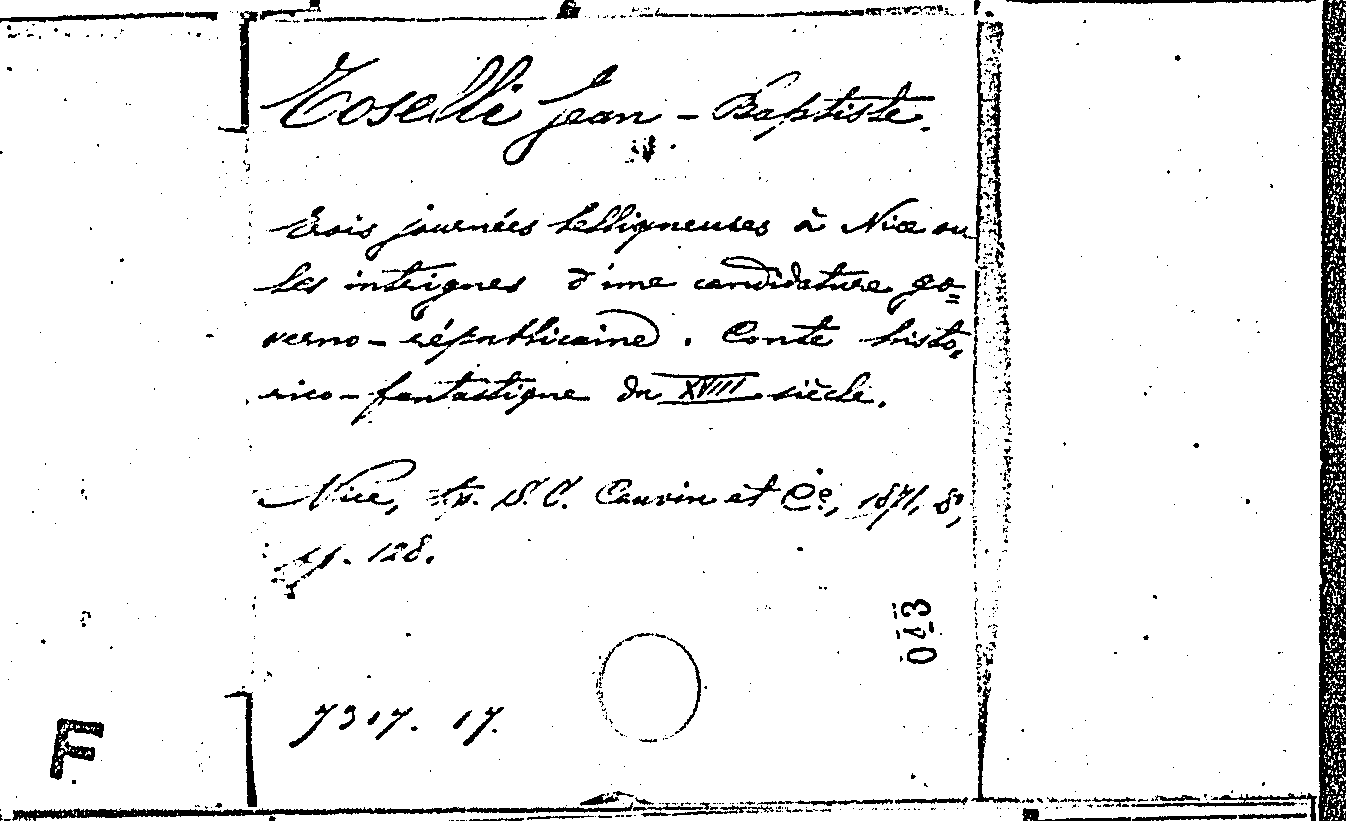 Toselli Jean - Baptiste.
Trois journées belligneuses à Nice ou
les intrigues d'une candidature go=
verno - républicaine. Conte histo,
rico - fantastique du XVIII siècle.
Nice, tp. S. C. Cauvin et Cº, 1871, 8º,
pp. 128.
043
7317. 17.
F